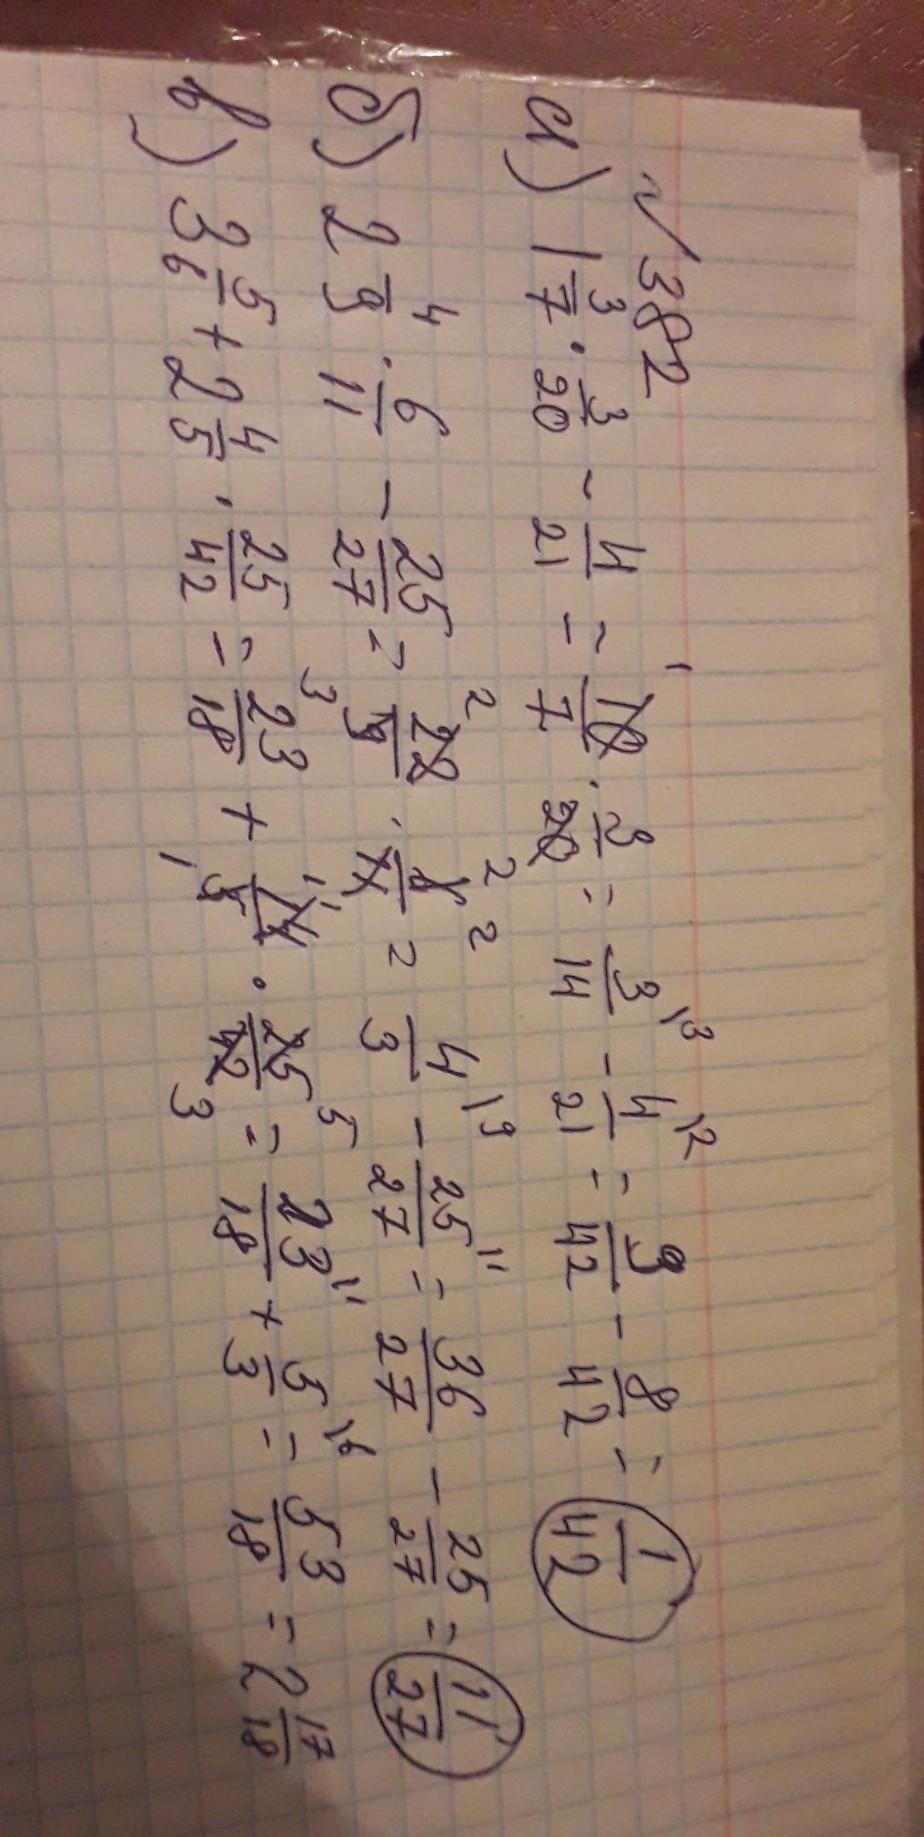 № 382
а) 1 3/7 · 3/20 - 4/21 = 10/7 · 3/20 = 3/14 \3 - 4/21 \2 = 9/42 - 8/42 = 1/42
б) 2 4/9 · 6/11 - 25/27 = 22/9 · 6/11 = 4/3 \9 - 25/27 \1 = 36/27 - 25/27 = 11/27
в) 3 5/6 + 2 4/5 · 25/42 = 23/18 + 14/5 · 25/42 = 23/18 \1 + 5/3 \6 = 53/18 = 2 17/18